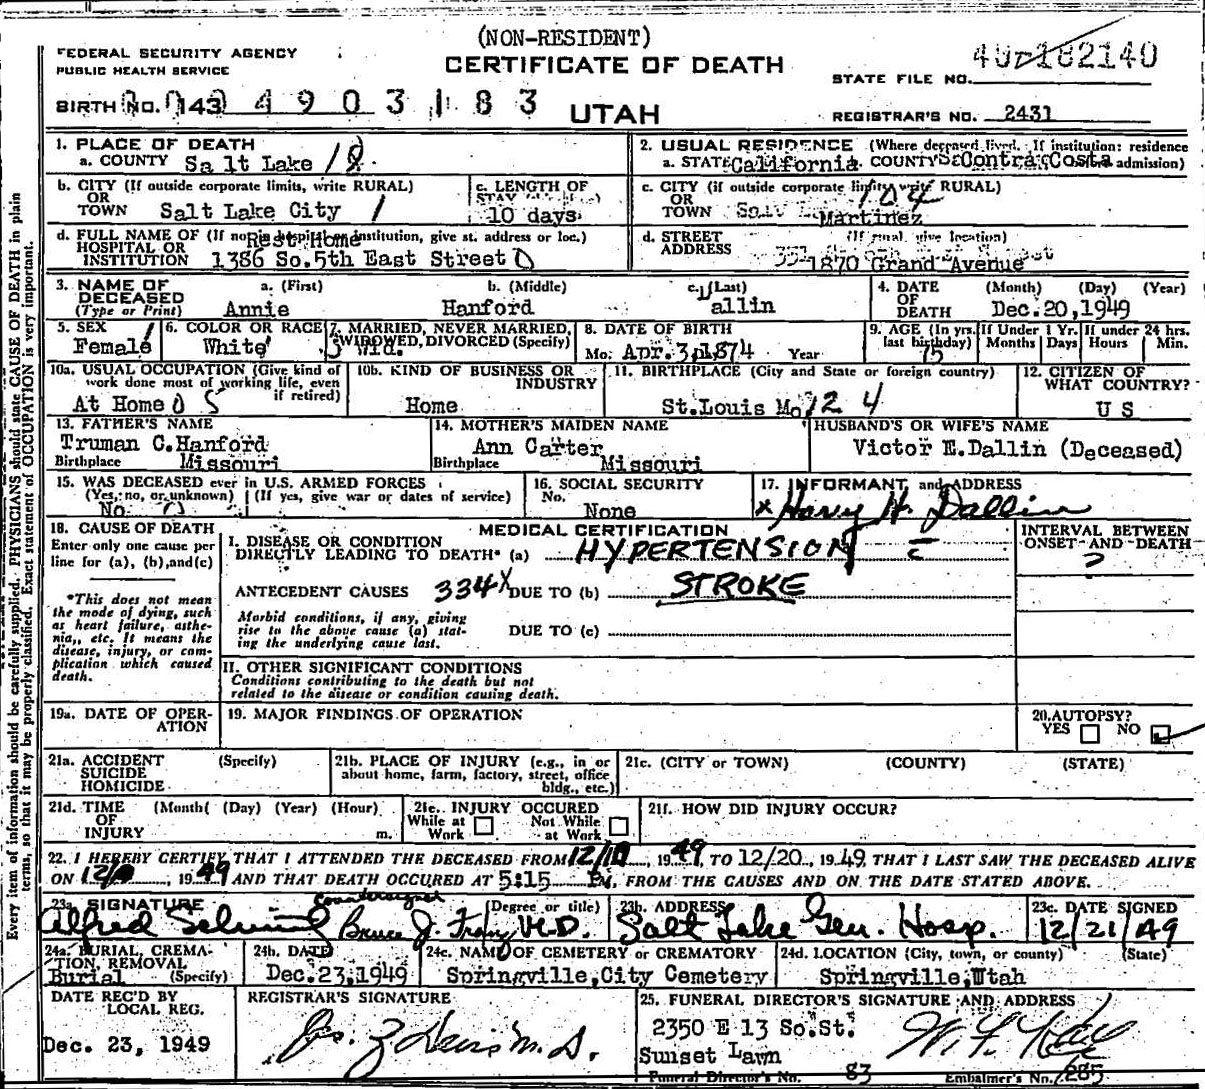 (NON-RESIDENT)
FEDERAL SECURITY AGENCY
PUBLIC HEALTH SERVICE
CERTIFICATE OF DEATH
STATE FILE NO. 182140
BIRTH NO. 143 4903183
UTAH
REGISTRAR'S NO. 2431
1. PLACE OF DEATH
a. COUNTY Salt Lake 18
2. USUAL RESIDENCE (Where deceased lived. If institution: residence
a. STATE California. COUNTY Contra Costa admission)
b. CITY (If outside corporate limits, write RURAL)
OR
TOWN Salt Lake City 1
c. LENGTH OF
STAY
10 days
c. CITY (if outside corporate limits, write RURAL)
OR 104
TOWN Martinez
d. FULL NAME OF (If not in hospital or institution, give st. address or loc.)
HOSPITAL OR Rest Home
INSTITUTION 1386 So.5th East Street 0
d. STREET (If rural, give location)
ADDRESS 1870 Grand Avenue
3. NAME OF a. (First) b. (Middle) c. (Last)
DECEASED
(Type or Print) Annie Hanford allin
4. DATE (Month) (Day) (Year)
OF
DEATH Dec.20,1949
5. SEX 1
Female
6. COLOR OR RACE
White
7. MARRIED, NEVER MARRIED,
WIDOWED, DIVORCED (Specify)
3 Wid.
8. DATE OF BIRTH
Mo. Apr.3,1874 Year
9. AGE (In yrs. last birthday) 75
If Under 1 Yr. Months Days
If under 24 hrs. Hours Min.
10a. USUAL OCCUPATION (Give kind of
work done most of working life, even
if retired)
At Home 0 5
10b. KIND OF BUSINESS OR
INDUSTRY
Home
11. BIRTHPLACE (City and State or foreign country)
St.Louis Mo 12 4
12. CITIZEN OF
WHAT COUNTRY?
U S
13. FATHER'S NAME
Truman C.Hanford
Birthplace Missouri
14. MOTHER'S MAIDEN NAME
Ann Carter
Birthplace Missouri
HUSBAND'S OR WIFE'S NAME
Victor E.Dallin (Deceased)
15. WAS DECEASED ever in U.S. ARMED FORCES
(Yes, no, or unknown) (If yes, give war or dates of service)
No 0
16. SOCIAL SECURITY
No.
None
17. INFORMANT and ADDRESS
x Harry H. Dallin
18. CAUSE OF DEATH
Enter only one cause per
line for (a), (b), and (c)
*This does not mean
the mode of dying, such
as heart failure, asthe-
nia, etc. It means the
disease, injury, or com-
plication which caused
death.
MEDICAL CERTIFICATION
I. DISEASE OR CONDITION
DIRECTLY LEADING TO DEATH* (a) HYPERTENSION c̄
ANTECEDENT CAUSES 334X DUE TO (b) STROKE
Morbid conditions, if any, giving
rise to the above cause (a) stat-
ing the underlying cause last.
DUE TO (c)
INTERVAL BETWEEN
ONSET AND DEATH
?
II. OTHER SIGNIFICANT CONDITIONS
Conditions contributing to the death but not
related to the disease or condition causing death.
19a. DATE OF OPER-
ATION
19. MAJOR FINDINGS OF OPERATION
20. AUTOPSY?
YES NO
21a. ACCIDENT (Specify)
SUICIDE
HOMICIDE
21b. PLACE OF INJURY (e.g., in or
about home, farm, factory, street, office
bldg., etc.)
21c. (CITY or TOWN) (COUNTY) (STATE)
21d. TIME (Month) (Day) (Year) (Hour)
OF
INJURY m.
21e. INJURY OCCURED
While at Work Not While at Work
21f. HOW DID INJURY OCCUR?
22. I HEREBY CERTIFY THAT I ATTENDED THE DECEASED FROM 12/10, 1949 TO 12/20, 1949, THAT I LAST SAW THE DECEASED ALIVE
ON 12/, 1949 AND THAT DEATH OCCURED AT 5:15 P.M., FROM THE CAUSES AND ON THE DATE STATED ABOVE.
23a. SIGNATURE countersigned (Degree or title)
Alfred Bruce J. M.D.
23b. ADDRESS
Salt Lake Gen. Hosp.
23c. DATE SIGNED
12/21/49
24a. BURIAL, CREMA-
TION, REMOVAL
Burial (Specify)
24b. DATE
Dec.23,1949
24c. NAME OF CEMETERY or CREMATORY
Springville,City Cemetery
24d. LOCATION (City, town, or county) (State)
Springville,Utah
DATE REC'D BY
LOCAL REG.
Dec. 23, 1949
REGISTRAR'S SIGNATURE
M.D.
25. FUNERAL DIRECTOR'S SIGNATURE AND ADDRESS
2350 E 13 So.St.
Sunset Lawn
Funeral Director's No. 83 Embalmer's No. 285
Every item of information should be carefully supplied. PHYSICIANS should state CAUSE OF DEATH in plain
terms, so that it may be properly classified. Exact statement of OCCUPATION is very important.